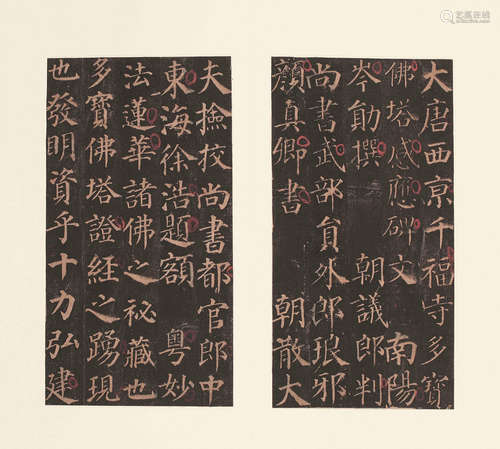 大唐西京千福寺多寶
佛塔感應碑文 南陽
岑勛撰 朝議郎判
尚書武部員外郎琅邪
顏真卿書 朝散大
夫撿挍尚書都官郎中
東海徐浩題額 粵妙
法蓮華諸佛之祕藏也
多寶佛塔證經之踴現
也發明資乎十力弘建
艺狐在线